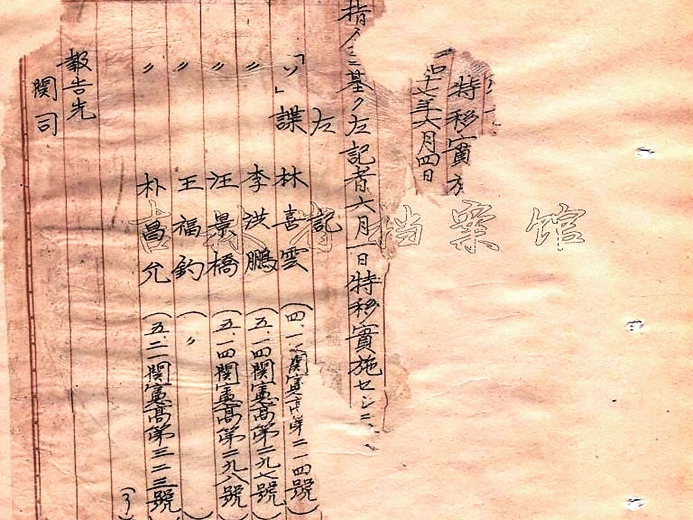 特移實
昭十六年六月四日
指令ニ基ク左記者六月一日特移實施セシニ
左記
「ソ」諜 林喜雲 (四、一 関憲高第二一四號)
〃 李洪鵬 (五、一四関憲高第二九七號)
〃 汪景橋 (五、一四関憲高第二九八號)
〃 王福釣 ( 〃 )
〃 朴昌允 (五、二一関憲高第三二三號)
報告先
関司
吉林省档案馆